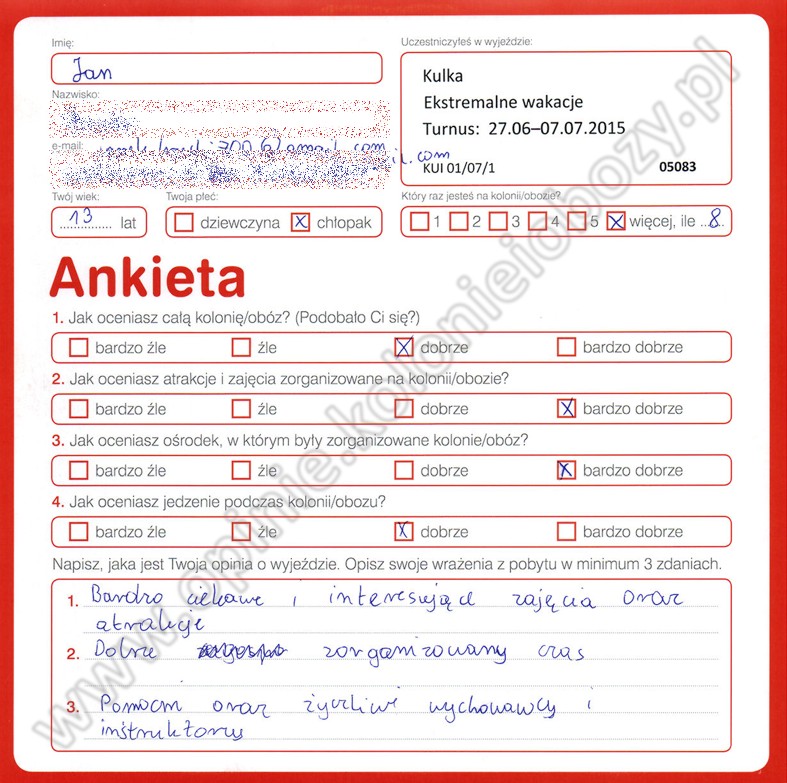 Imię:
Jan
Nazwisko:
e-mail:
Twój wiek:
13 lat
Twoja płeć:
dziewczyna X chłopak
Uczestniczyłeś w wyjeździe:
Kulka
Ekstremalne wakacje
Turnus: 27.06–07.07.2015
KUI 01/07/1 05083
Który raz jesteś na kolonii/obozie?
1 2 3 4 5 X więcej, ile 8
Ankieta
1. Jak oceniasz całą kolonię/obóz? (Podobało Ci się?)
bardzo źle źle X dobrze bardzo dobrze
2. Jak oceniasz atrakcje i zajęcia zorganizowane na kolonii/obozie?
bardzo źle źle dobrze X bardzo dobrze
3. Jak oceniasz ośrodek, w którym były zorganizowane kolonie/obóz?
bardzo źle źle dobrze X bardzo dobrze
4. Jak oceniasz jedzenie podczas kolonii/obozu?
bardzo źle źle X dobrze bardzo dobrze
Napisz, jaka jest Twoja opinia o wyjeździe. Opisz swoje wrażenia z pobytu w minimum 3 zdaniach.
1. Bardzo ciekawe i interesujące zajęcia oraz
atrakcje
2. Dobrze zorganizowany czas
3. Pomocni oraz życzliwi wychowawcy i
instruktorzy
www.opinie.kolonieiobozy.pl